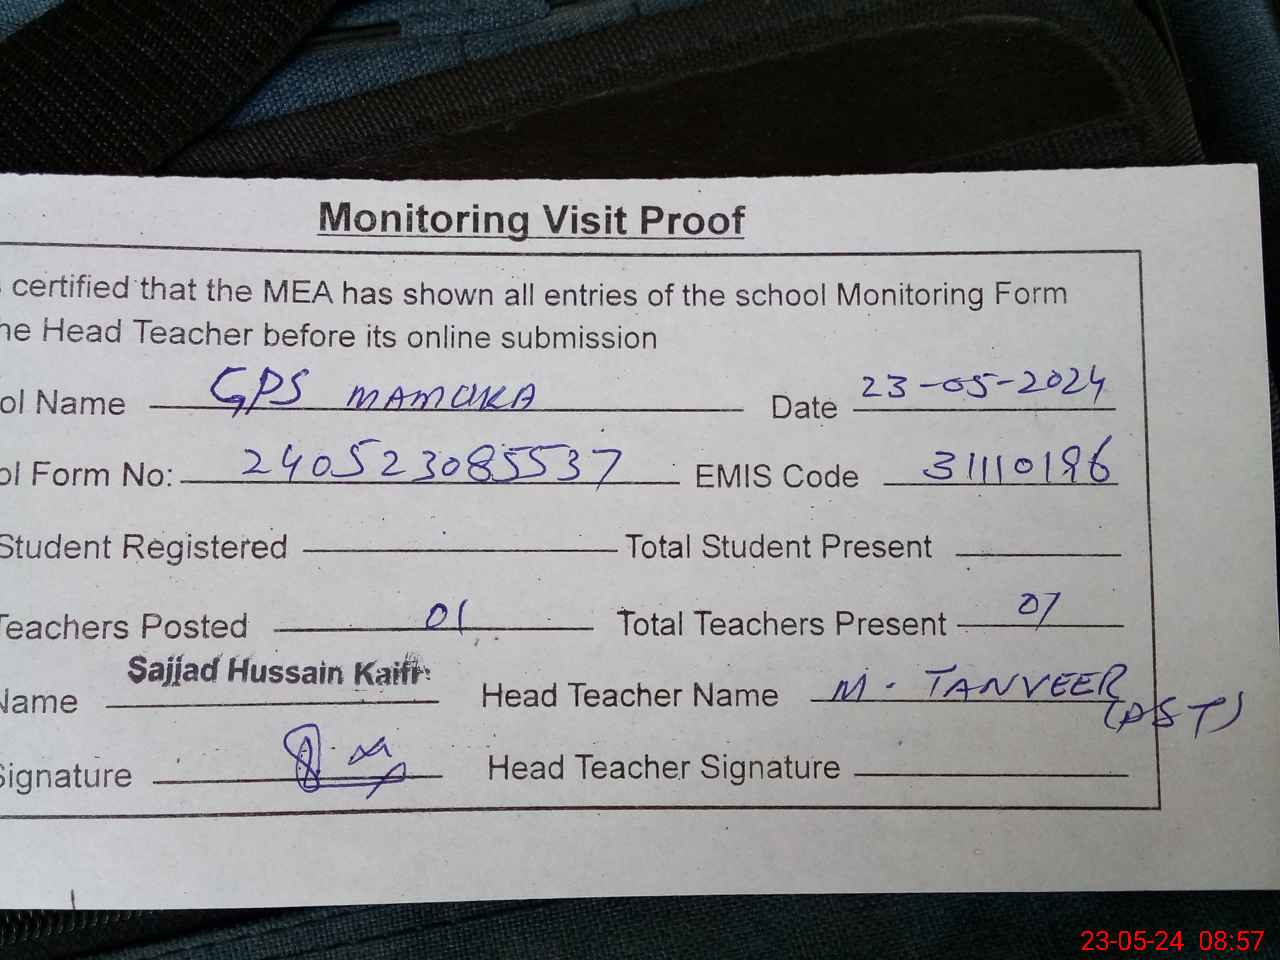 Monitoring Visit Proof
certified that the MEA has shown all entries of the school Monitoring Form
he Head Teacher before its online submission
ol Name GPS MAMUKA Date 23-05-2024
ol Form No: 240523085537 EMIS Code 31110196
Student Registered Total Student Present
Teachers Posted 01 Total Teachers Present 01
Name Sajjad Hussain Head Teacher Name M. TANVEER
(PST)
Signature Head Teacher Signature
23-05-24 08:57